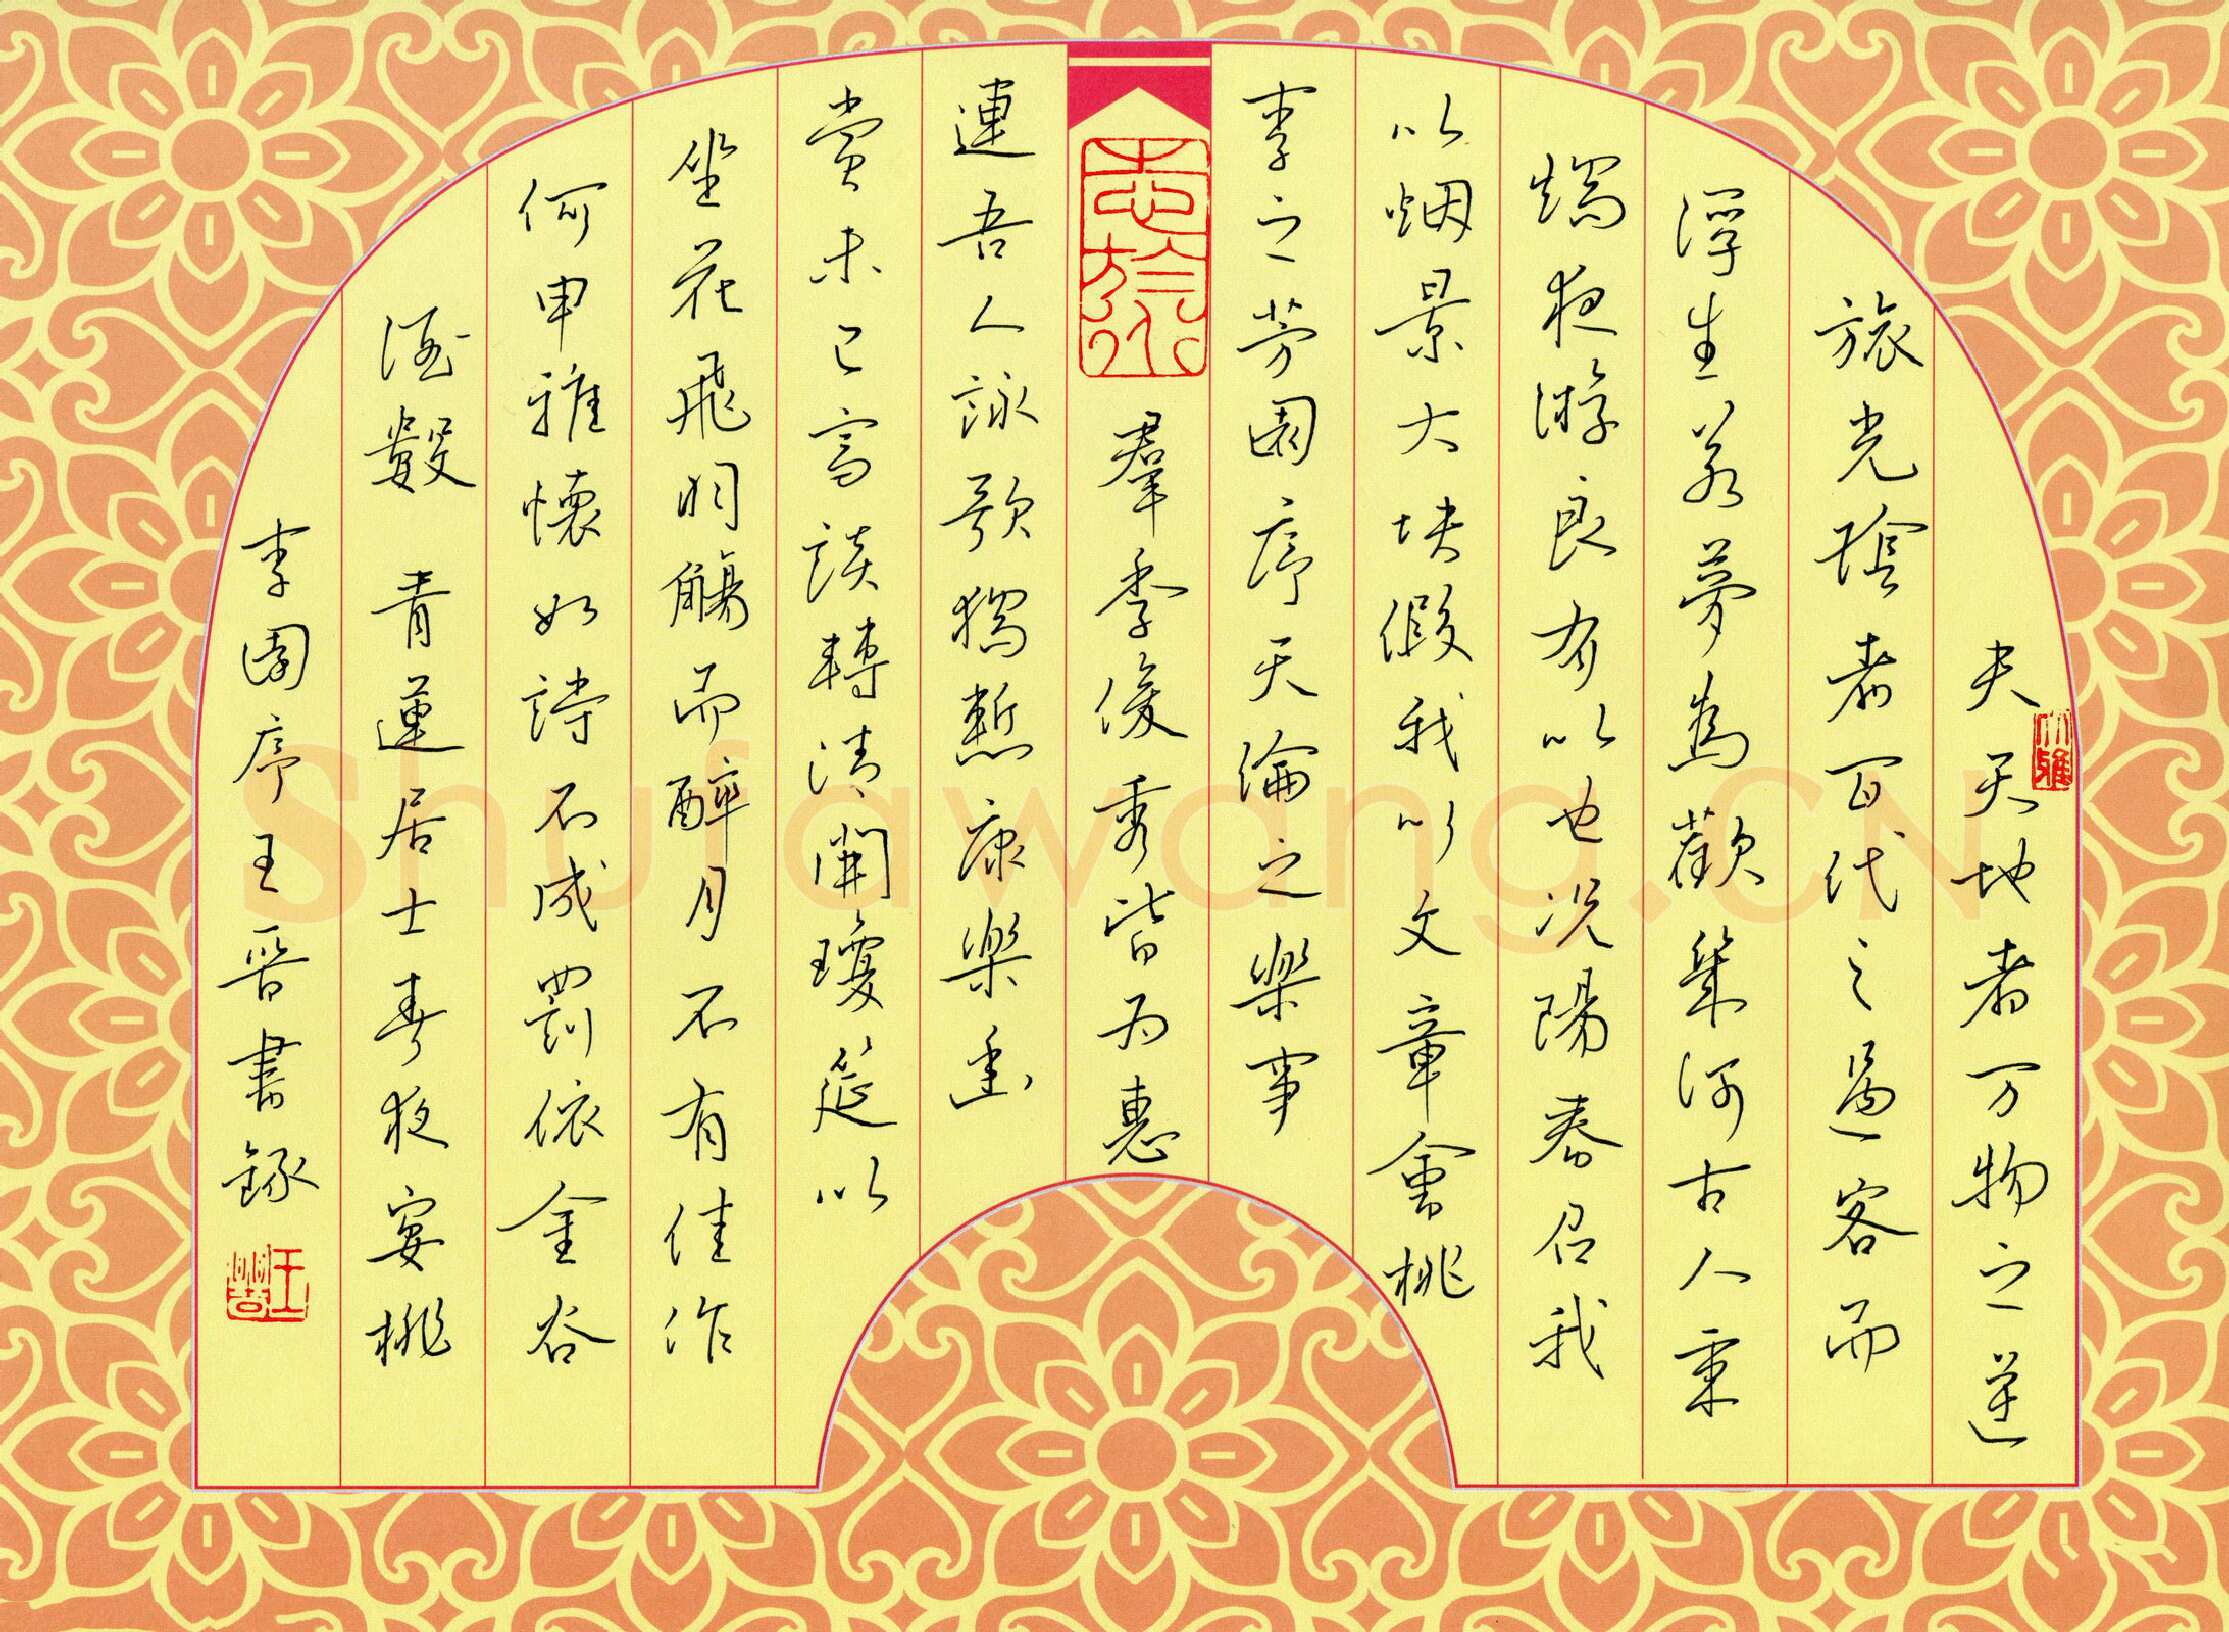 夫天地者万物之逆
旅光陰者百代之過客而
浮生若夢為歡幾何古人秉
燭夜游良有以也况陽春召我
以烟景大块假我以文章會桃
李之芳園序天倫之樂事
羣季俊秀皆为惠
連吾人詠歌獨慙康樂幽
賞未已高談轉清開瓊筵以
坐花飛羽觴而醉月不有佳作
何申雅懷如詩不成罰依金谷
酒數 青蓮居士春夜宴桃
李園序王晋書録
Shufawang.CN